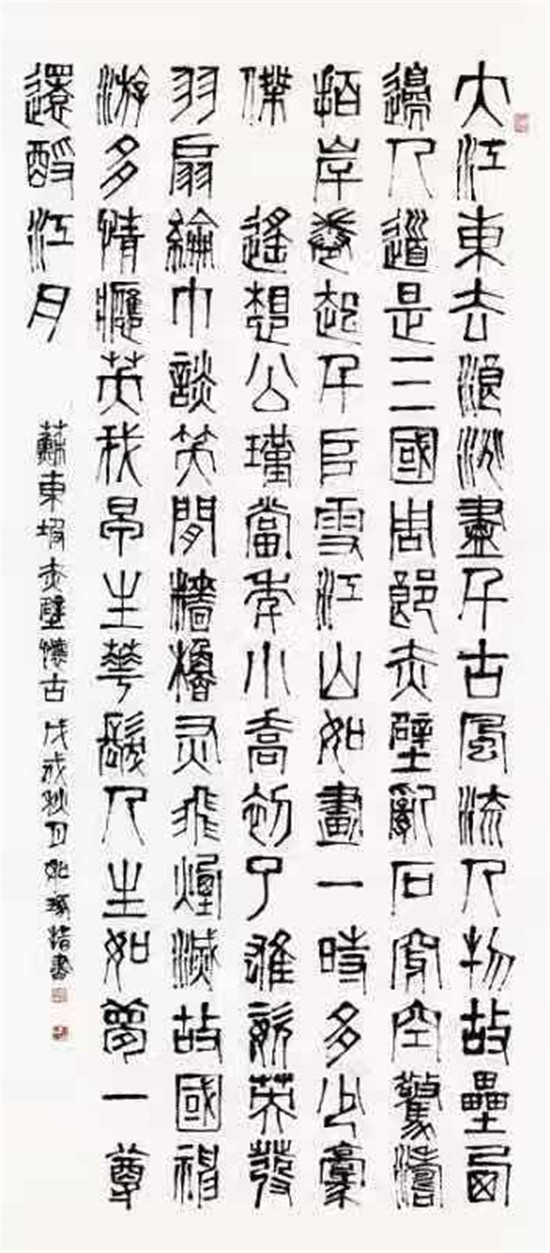 大江東去浪淘盡千古風流人物故壘西
邊人道是三國周郎赤壁亂石穿空驚濤
拍岸卷起千堆雪江山如畫一時多少豪
傑 遙想公瑾當年小喬初了雄姿英發
羽扇綸巾談笑間牆櫓灰飛煙滅故國神
游多情應笑我早生華髮人生如夢一尊
還酹江月
蘇東坡赤壁懷古 戊戌秋月書